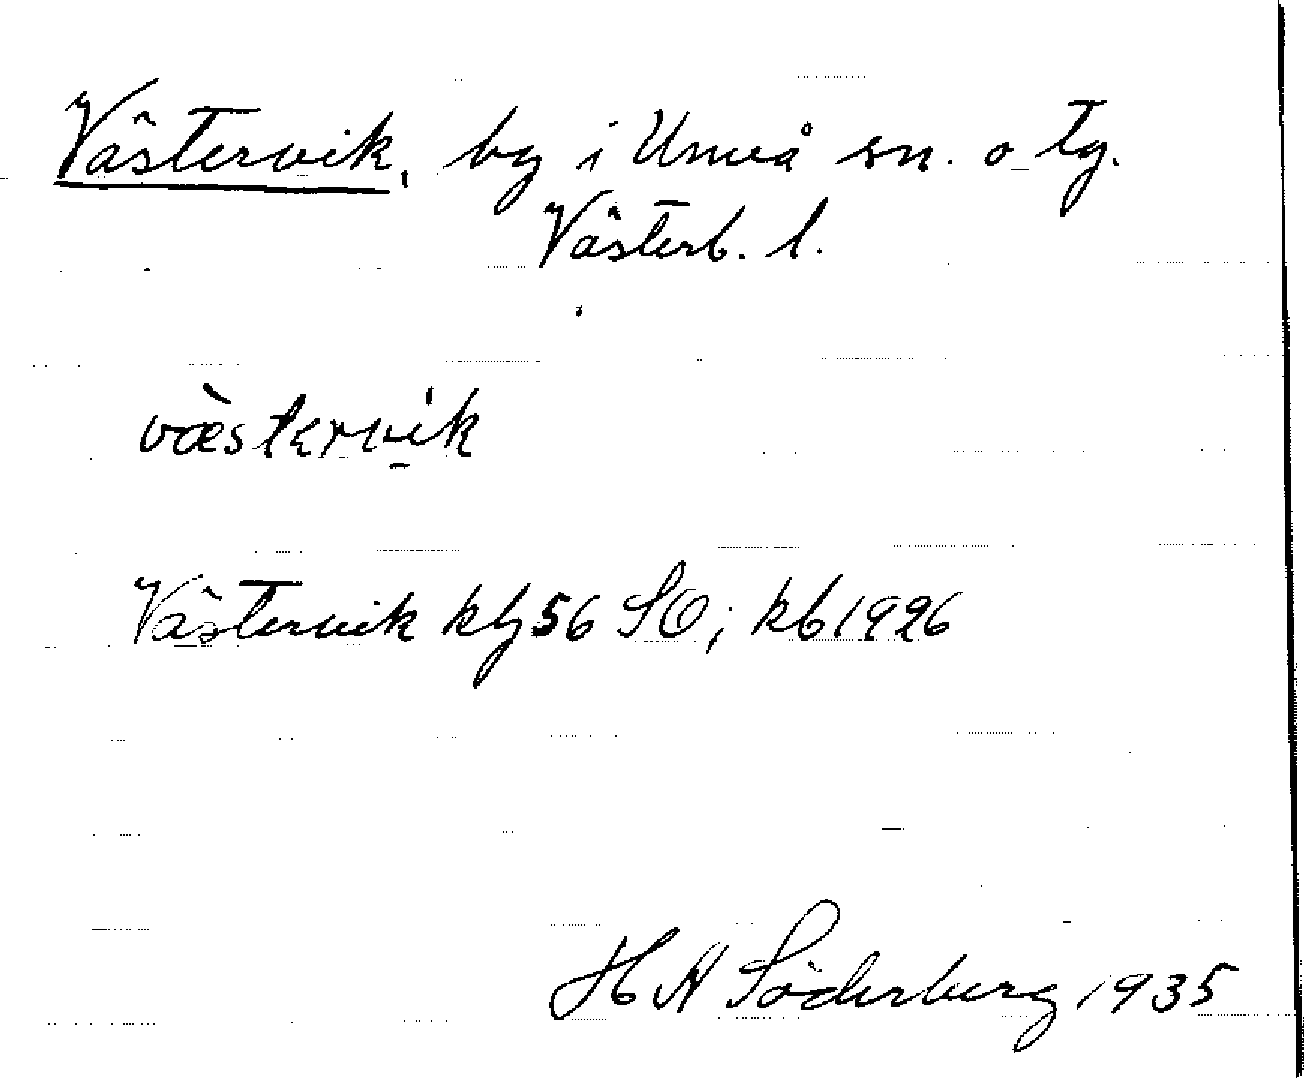 Västervik, by i Umeå sn. o tg.
Västerb. l.
væ̀stərvi̱k
Västervik kbg 56 SO; kb 1926
H A Söderberg 1935